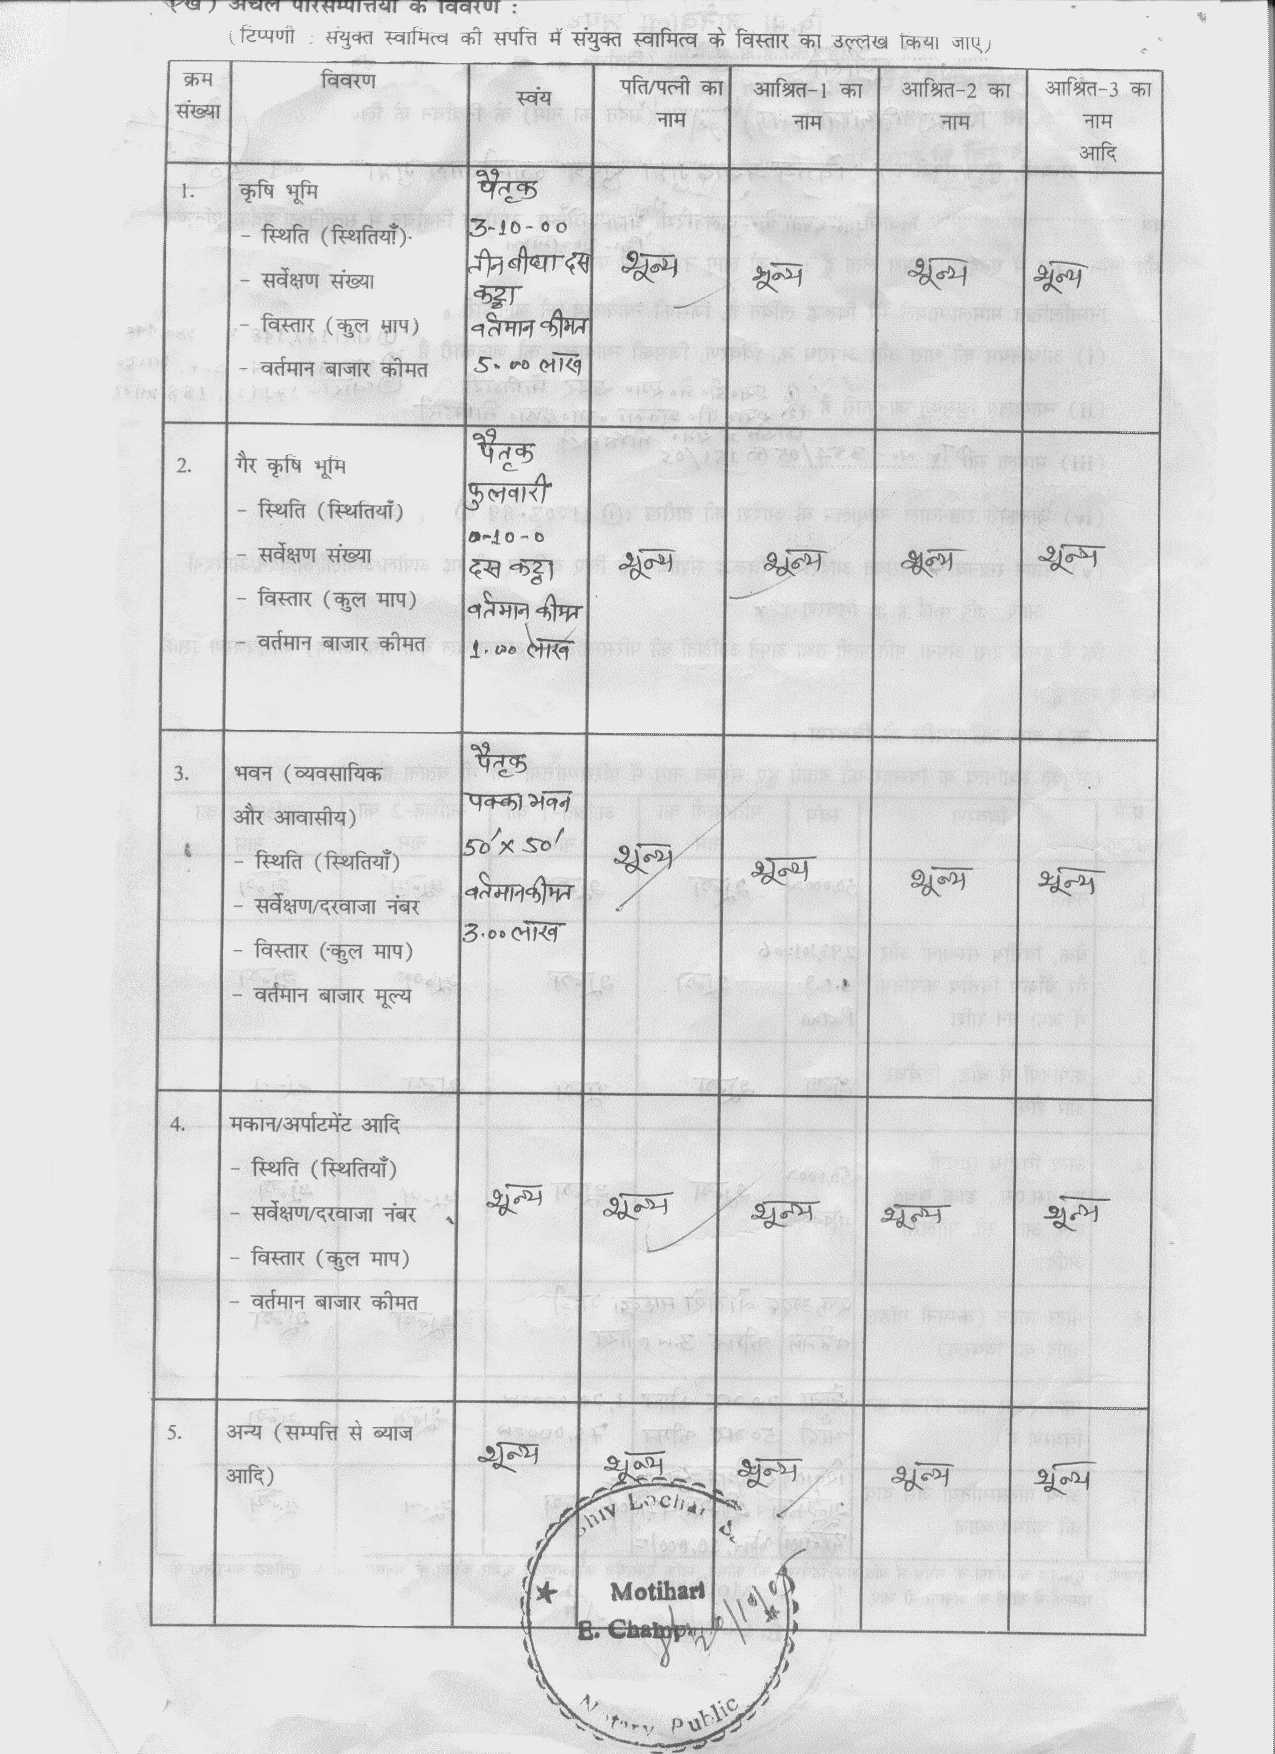 (ख) अचल परिसम्पत्तियों के विवरण :
(टिप्पणी : संयुक्त स्वामित्व की संपत्ति में संयुक्त स्वामित्व के विस्तार का उल्लेख किया जाए)
क्रम संख्या विवरण स्वंय पति/पत्नी का नाम आश्रित-1 का नाम आश्रित-2 का नाम आश्रित-3 का नाम आदि
1. कृषि भूमि
- स्थिति (स्थितियाँ)
- सर्वेक्षण संख्या
- विस्तार (कुल माप)
- वर्तमान बाजार कीमत
पैतृक
3-10-00
तीन बीघा दस
कट्ठा
वर्तमान कीमत
5.00 लाख
शून्य शून्य शून्य शून्य
2. गैर कृषि भूमि
- स्थिति (स्थितियाँ)
- सर्वेक्षण संख्या
- विस्तार (कुल माप)
- वर्तमान बाजार कीमत
पैतृक
फुलवारी
0-10-0
दस कट्ठा
वर्तमान कीमत
1.00 लाख
शून्य शून्य शून्य शून्य
3. भवन (व्यवसायिक
और आवासीय)
- स्थिति (स्थितियाँ)
- सर्वेक्षण/दरवाजा नंबर
- विस्तार (कुल माप)
- वर्तमान बाजार मूल्य
पैतृक
पक्का भवन
50' x 50'
वर्तमान कीमत
3.00 लाख
शून्य शून्य शून्य शून्य
4. मकान/अर्पाटमेंट आदि
- स्थिति (स्थितियाँ)
- सर्वेक्षण/दरवाजा नंबर
- विस्तार (कुल माप)
- वर्तमान बाजार कीमत
शून्य शून्य शून्य शून्य शून्य
5. अन्य (सम्पत्ति से ब्याज
आदि)
शून्य शून्य शून्य शून्य शून्य
Shiv Lochan
Motihari
E. Champ
Notary Public